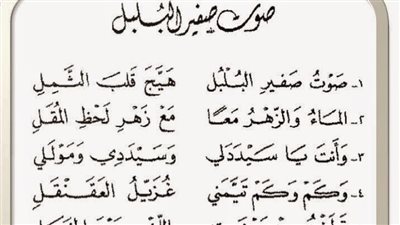 صوت صفير البلبل
١- صَوْتُ صَفِيرِ البُلْبُلِ هَيَّجَ قَلبَ الثَّمِلِ
٢- المَاءُ وَالزَّهْرُ مَعًا مَعْ زَهْرِ لَحْظِ المُقَلِ
٣- وَأَنتَ يَا سَيِّدَدَلي وَسَيِّدَدِي وَمَوْلَلِي
٤- وَكَمْ وَكَمْ تَيَّمَني غُزَيِّلُ العَقَنْقَلِ